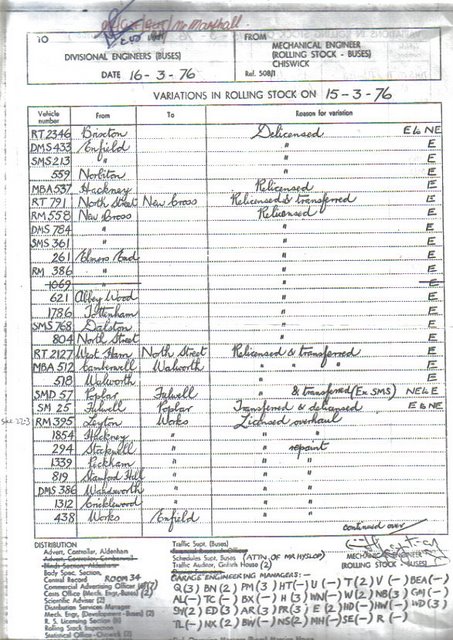 Mr Marshall
TO
FROM
DIVISIONAL ENGINEERS (BUSES)
MECHANICAL ENGINEER
(ROLLING STOCK - BUSES)
CHISWICK
DATE 16-3-76
Ref. 508/1
VARIATIONS IN ROLLING STOCK ON 15-3-76
Vehicle number From To Reason for variation
RT2346 Brixton Delicensed E & NE
DMS433 Enfield " E
SMS213 " " E
559 Norbiton " E
MBA537 Hackney Relicensed E
RT 791 North Street New Cross Relicensed & transferred E
RM 558 New Cross Relicensed E
DMS 784 " " E
SMS 361 " " E
261 Elmers End " E
RM 386 " " E
1069 " " E
621 Abbey Wood " E
1786 Tottenham " E
SMS 768 Dalston " E
804 North Street " E
RT 2127 West Ham North Street Relicensed & transferred E
MBA 512 Camberwell Walworth " " " E
518 Walworth " E
SMD 57 Poplar Fulwell " & transferred (Ex SMS) NE & E
SM 25 Fulwell Poplar Transferred & delicensed E & NE
RM 395 Leyton Works Licensed overhaul
1854 Hackney " " "
294 Stockwell " " repaint
1339 Peckham " " "
819 Stamford Hill " " "
DMS 386 Wandsworth " "
1312 Cricklewood " "
438 Works Enfield "
continued over
DISTRIBUTION
Advert. Controller, Aldenham
Body Spec. Section
Central Record ROOM 34
Commercial Advertising Officer
Costs Office (Mech. Engr.-Buses) (2)
Scientific Adviser (2)
Distribution Services Manager
Mech. Engr. Development - Buses (2)
R. S. Licensing Section
Rolling Stock Inspectors
Statistical Office - Chiswick (2)
Traffic Supt. (Buses)
Schedules Supt. Buses (ATTN. OF MR HYSLOP)
Traffic Auditor, Griffith House (2)
MECHANICAL ENGINEER
(ROLLING STOCK - BUSES)
GARAGE ENGINEERING MANAGERS:-